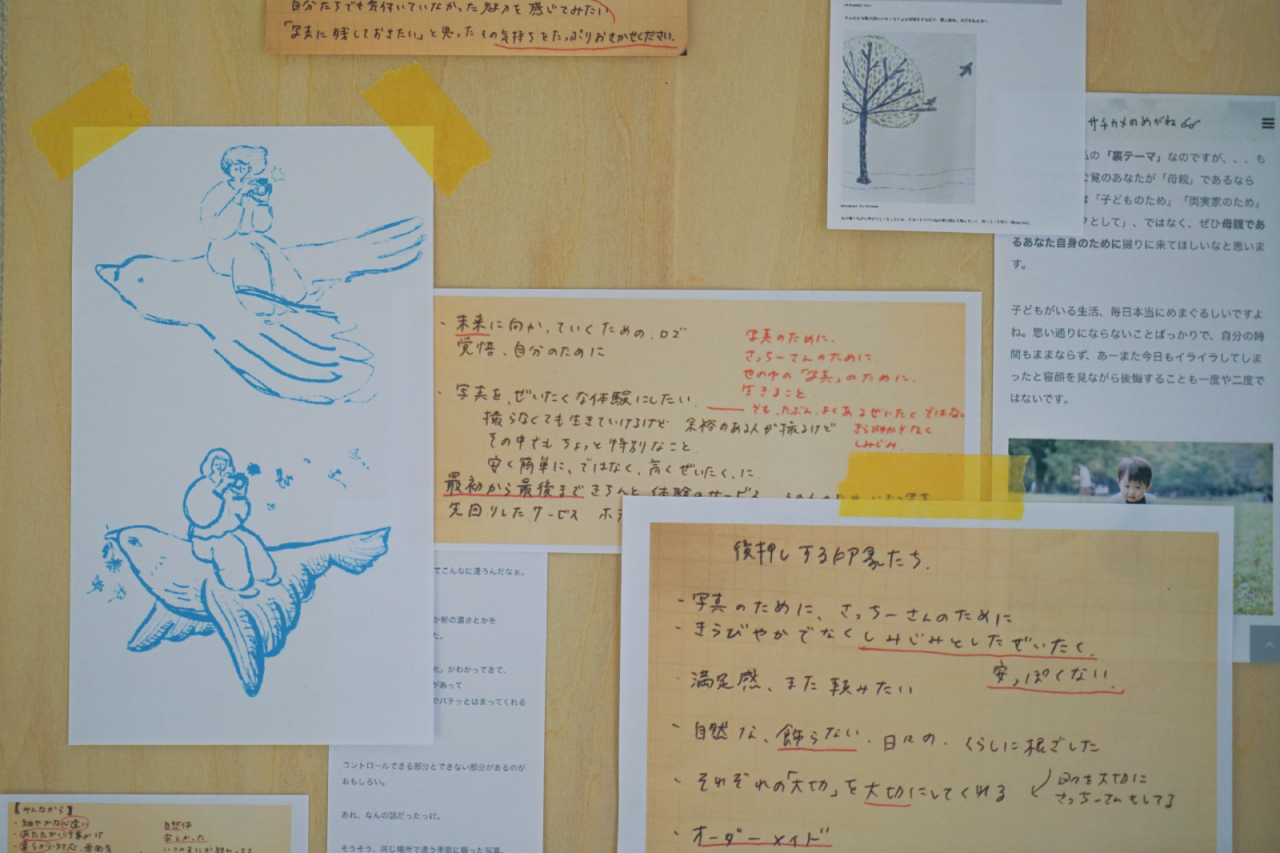 自分たちでも気付いていなかった魅力を感じてみたい
「写真に残しておきたい」と思ったその気持ちをたっぷりおきかせください。
サチカメのめがね
私の「裏テーマ」なのですが、、、も
ご覧のあなたが「母親」であるなら
は「子どものため」「両実家のため」
クとして」、ではなく、ぜひ母親であ
るあなた自身のために撮りに来てほしいなと思いま
す。
子どもがいる生活、毎日本当にめまぐるしいですよ
ね。思い通りにならないことばっかりで、自分の時
間もままならず、あーまた今日もイライラしてしま
ったと寝顔を見ながら後悔することも一度や二度で
はないです。
・未来に向かっていくための、ロゴ
覚悟、自分のために
・写真を、ぜいたくな体験にしたい
撮らなくても生きていけるけど 余裕のある人が撮るけど
その中でも ちょっと特別なこと
安く簡単に、ではなく、高くぜいたく、に
最初から最後まで きちんと 体験のサービス
先回りしたサービス ホテ
写真のために、
さっちーさんのために、
世の中の「写真」のために、
生きること
でも、たぶん、よくあるぜいたくではない
きらびやかでなく
しみじみ
後押しする印象たち、
・写真のために、さっちーさんのために
・きらびやかでなくしみじみとしたぜいたく、
安っぽくない
満足感、また頼みたい
・自然な、飾らない、日々の、くらしに根ざした
・それぞれの「大切」を大切にしてくれる
日々を大切に
さっちーさんもしてる
・オーダーメイド
てこんなに違うんだなぁ。
か影の濃さとかを
た。
光」がわかってきて、
があって
でパチッとはまってくれる
コントロールできる部分とできない部分があるのが
おもしろい。
あれ、なんの話だったっけ。
そうそう、同じ場所で違う季節に撮った写真。
【みんなから】
・細やかな心遣い
・あたたかい
自然体
楽しかった